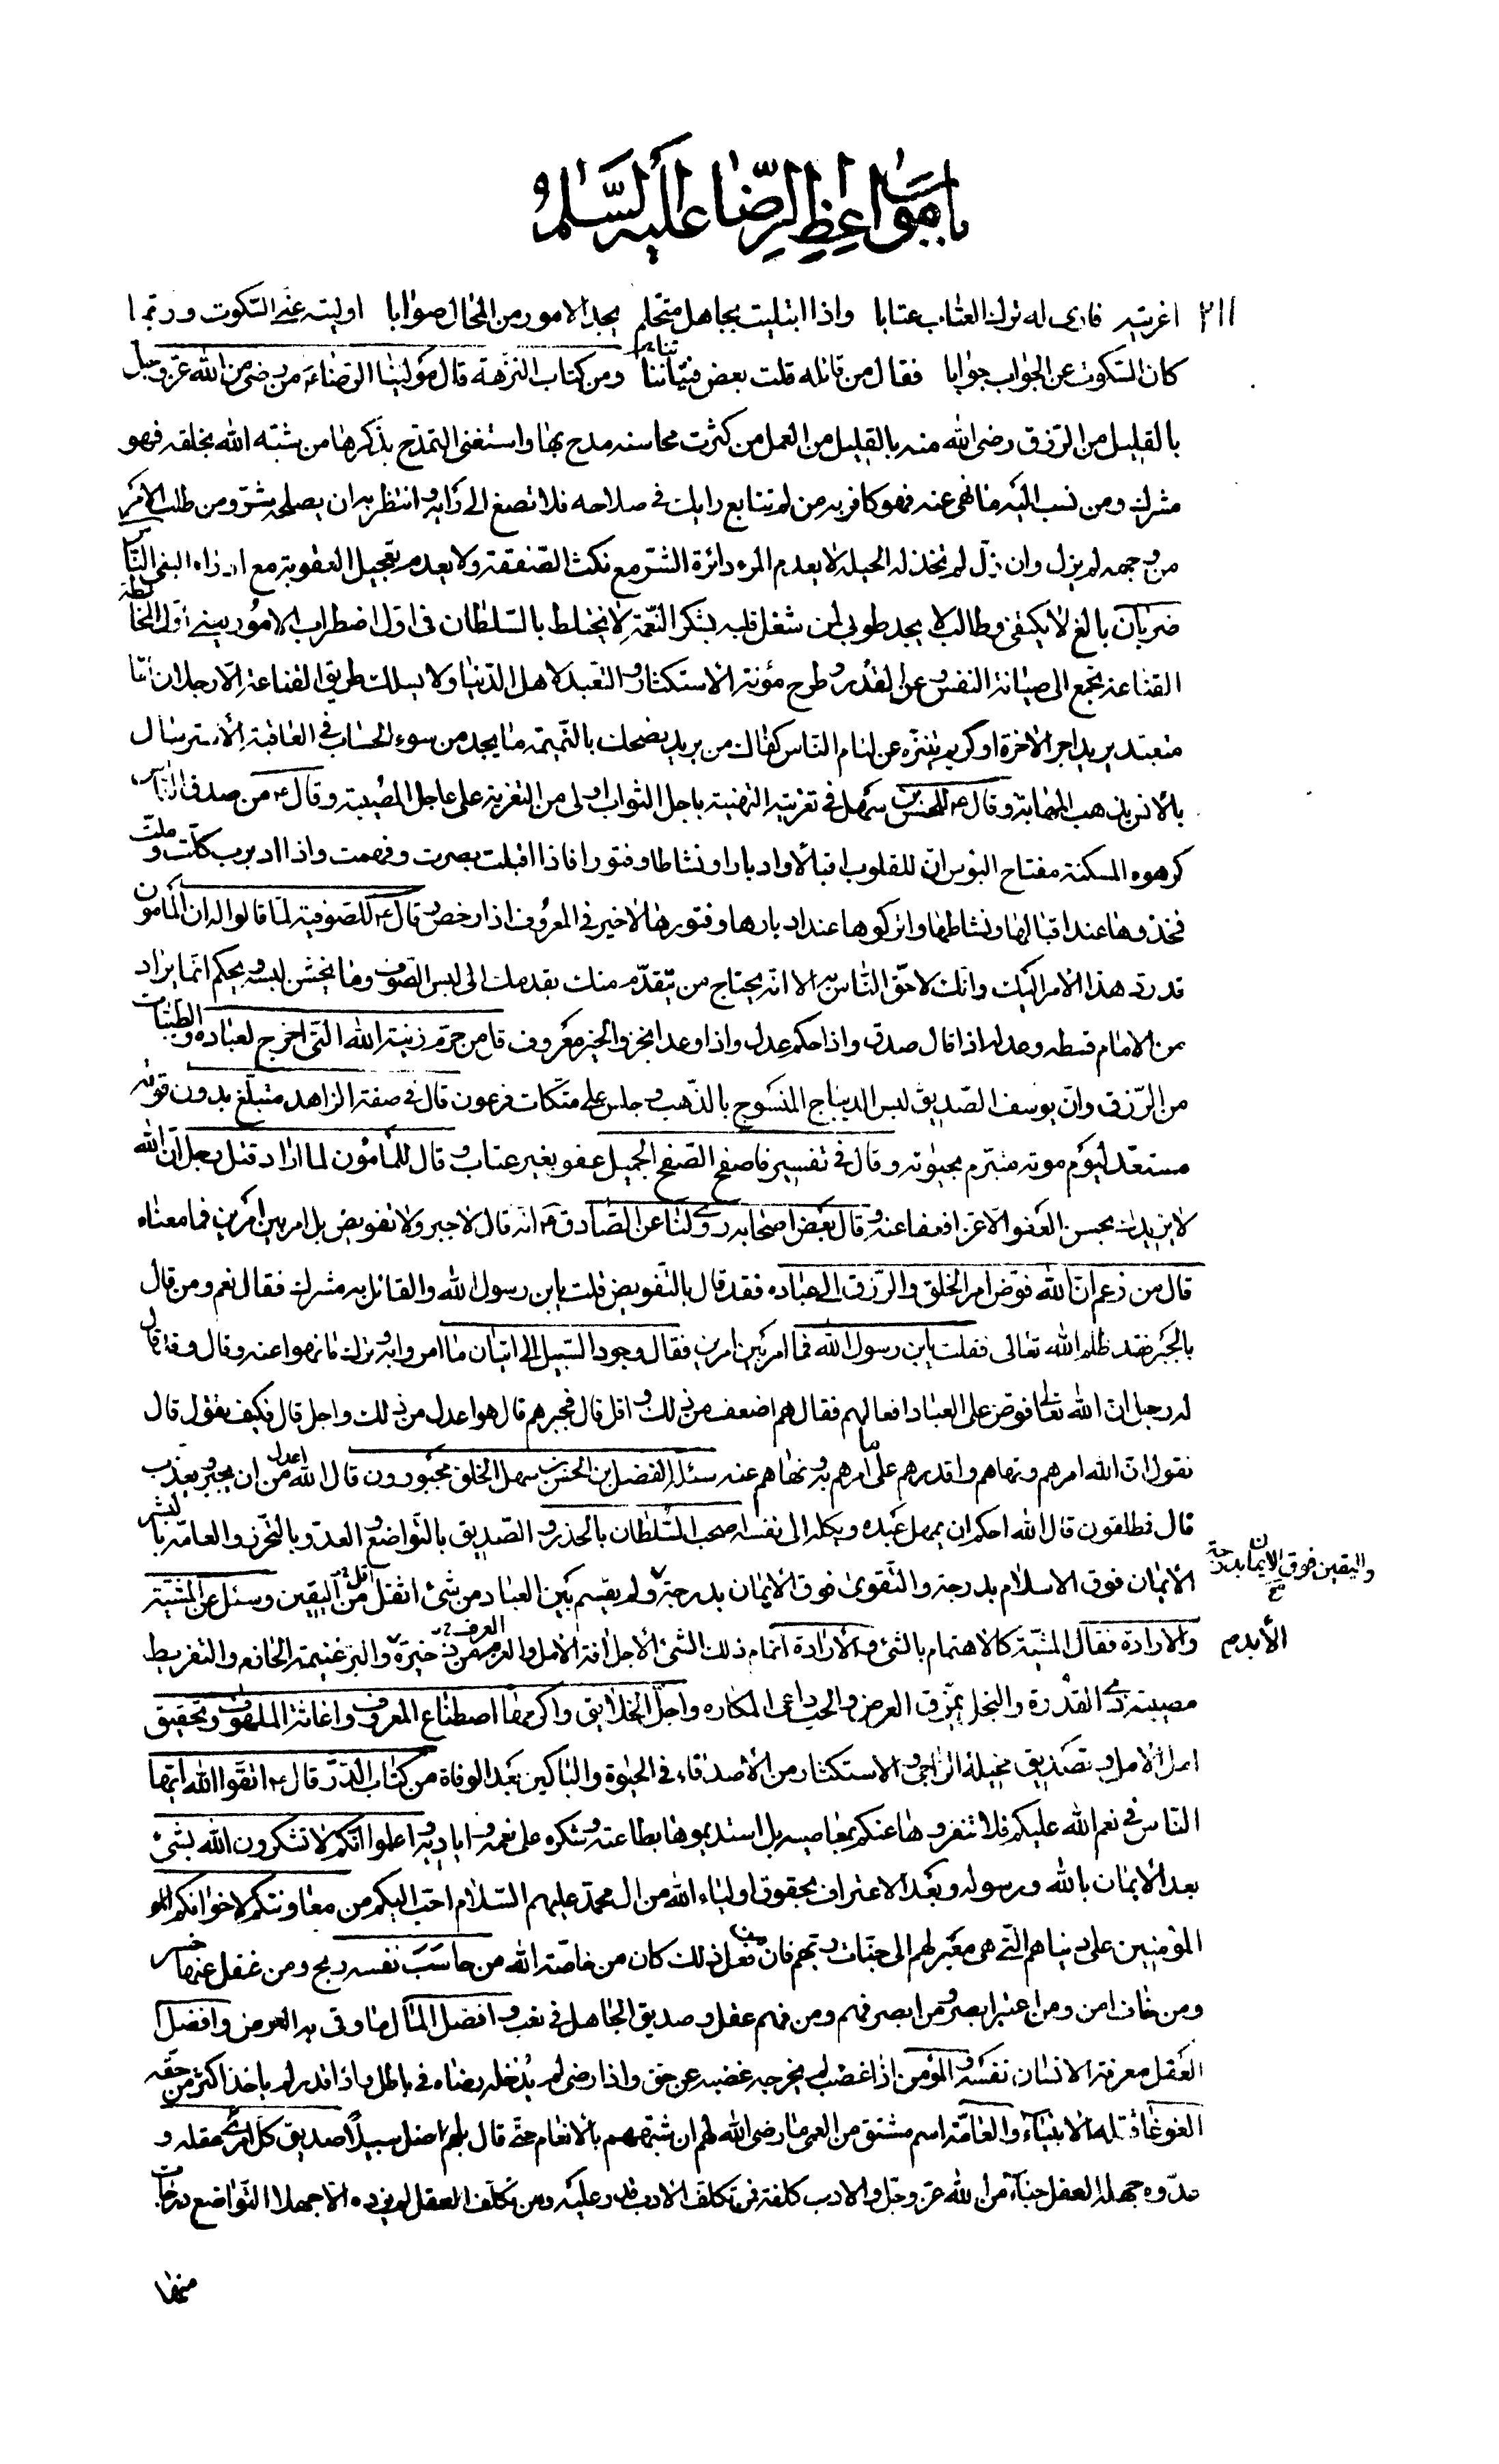 باب مواعظ الرضا عليه السلام
٢١١ اغريته فارى له ترك العتاب عتابا واذا ابتليت بجاهل متحلم يجد الامور من المحال صوابا اوليته عني السكوت وربما
كان السكوت عن الجواب جوابا فقال من قائله قلت بعض فتياننا ومن كتاب النزهة قال مولينا الرضا ع من رضى من الله عز وجل
بالقليل من الرزق رضى الله منه بالقليل من العمل من كثرت محاسنه مدح بها واستغنى التمدح بذكرها من شبه الله بخلقه فهو
مشرك ومن نسب اليه ما نهى عنه فهو كافر به من لم تتابع رايك في صلاحه فلا تصغ الى رايه وانتظر به ان يصلحه شر ومن طلب الامر
من وجهه لم يزل وان زل لم تخذله الحيلة لا يعدم المرء دائرة الشر مع نكث الصفقة ولا يعدم تعجيل العقوبة مع ادراء البغى الناس
ضربان بالغ لا يكتفى وطالب لا يجد طوبى لمن شغل قلبه بشكر النعمة لا يختلط بالسلطان في اول اضطراب الامور يعني اول المخالطة
القناعة تجمع الى صيانة النفس وعز القدر وطرح مؤنة الاستكثار والتعبد لاهل الدنيا ولا يسلك طريق القناعة الا رجلان اما
متعبد يريد اجر الاخرة او كريم يتنزه عن لئام الناس كفاك من يريد نصحك بالنميمة ما يجد من سوء الحساب في العاقبة الاسترسال
بالانس يذهب المهابة وقال ع للحسن بن سهل في تعزيته التهنية باجل الثواب اولى من التعزية على عاجل المصيبة وقال ع من صدق الناس
كرهوه المسكنة مفتاح البؤس ان للقلوب اقبالا وادبارا ونشاطا وفتورا فاذا اقبلت بصرت وفهمت واذا ادبرت كلت وملت
فخذوها عند اقبالها ونشاطها واتركوها عند ادبارها وفتورها لا خير في المعروف اذا رخص وقال ع للصوفية لما قالوا له ان المامون
قد رد هذا الامر اليك وانك لاحق الناس به الا انه يحتاج من يتقدم منك بقدمك الى لبس الصوف وما يخشن لبسه ويحكم انما يراد
من الامام قسطه وعدله اذا قال صدق واذا حكم عدل واذا وعد انجز والخير معروف قل من حرم زينة الله التي اخرج لعباده والطيبات
من الرزق وان يوسف الصديق لبس الديباج المنسوج بالذهب وجلس على متكات فرعون قال في صفة الزاهد متبلغ بدون قوته
مستعد ليوم موته متبرم بحيوته وقال في تفسير فاصفح الصفح الجميل عفو بغير عتاب وقال للمأمون لما اراد قتل رجل ان الله
لا يزيدك بحسن العفو الا عزا فعفا عنه وقال بعض اصحابه روى لنا عن الصادق ع انه قال لا جبر ولا تفويض بل امر بين امرين فما معناه
قال من زعم ان الله فوض امر الخلق والرزق الى عباده فقد قال بالتفويض قلت يابن رسول الله والقائل به مشرك فقال نعم ومن قال
بالجبر فقد ظلم الله تعالى فقلت يابن رسول الله فما امر بين امرين فقال وجود السبيل الى اتيان ما امروا به وترك ما نهوا عنه وقال وقد قال
له رجل ان الله تعالى فوض على العباد افعالهم فقال هم اضعف من ذلك واقل قال فجبرهم قال هو اعدل من ذلك واجل قال فكيف تقول قال
نقول ان الله امرهم ونهاهم واقدرهم على ما امرهم به ونهاهم عنه سئله الفضل بن الحسن بن سهل الخلق مجبورون قال الله اعدل من ان يجبر ويعذب
قال فطلقون قال الله احكم ان يمهل عبده ويكله الى نفسه اصحب السلطان بالحذر والصديق بالتواضع والعدو بالتحرز والعامة بالبشر
الايمان فوق الاسلام بدرجة والتقوى فوق الايمان بدرجة ولم يقسم بين العباد من شئ اقل من اليقين وسئل عن المشية
واليقين فوق الايمان بدرجة
والارادة فقال المشية كالاهتمام بالشئ والارادة اتمام ذلك الشئ الاجل افة الامل والعرف ذخيرة والبر غنيمة الحازم والتفريط
مصيبة ذى القدرة والبخل يمزق العرض والحب داعى المكاره واجل الخلايق واكرمها اصطناع المعروف واغاثة الملهوف وتحقيق
امل الامل وتصديق مخيلة الراجى والاستكثار من الاصدقاء في الحيوة والباكين بعد الوفاة من كتاب الدر قال ع اتقوا الله ايها
الناس في نعم الله عليكم فلا تنفروها عنكم بمعاصيه بل استديموها بطاعته وشكره على نعمه واياديه واعلموا انكم لا تشكرون الله بشئ
بعد الايمان بالله ورسوله وبعد الاعتراف بحقوق اولياء الله من ال محمد عليهم السلام احب اليكم من معاونتكم لاخوانكم
المؤمنين على دنياهم التي هي معبر لهم الى جنات ربهم فان من فعل ذلك كان من خاصة الله من حاسب نفسه ربح ومن غفل عنها خسر
ومن خاف امن ومن اعتبر ابصر ومن ابصر فهم ومن فهم عقل وصديق الجاهل في تعب وافضل المال ما وقى به العرض وافضل
العقل معرفة الانسان نفسه والمؤمن اذا غضب لم يخرجه غضبه عن حق واذا رضى لم يدخله رضاه في باطل واذا قدر لم ياخذ اكثر من حقه
الغوغاء قتلة الانبياء والعامة اسم مشتق من العمى ما رضى الله لهم ان شبههم بالانعام حتى قال بل هم اضل سبيلا صديق كل امرئ عقله و
عدوه جهله العقل حباء من الله عز وجل والادب كلفة فمن تكلف الادب قدر عليه ومن تكلف العقل لم يزده الا جهلا التواضع درجات
منها